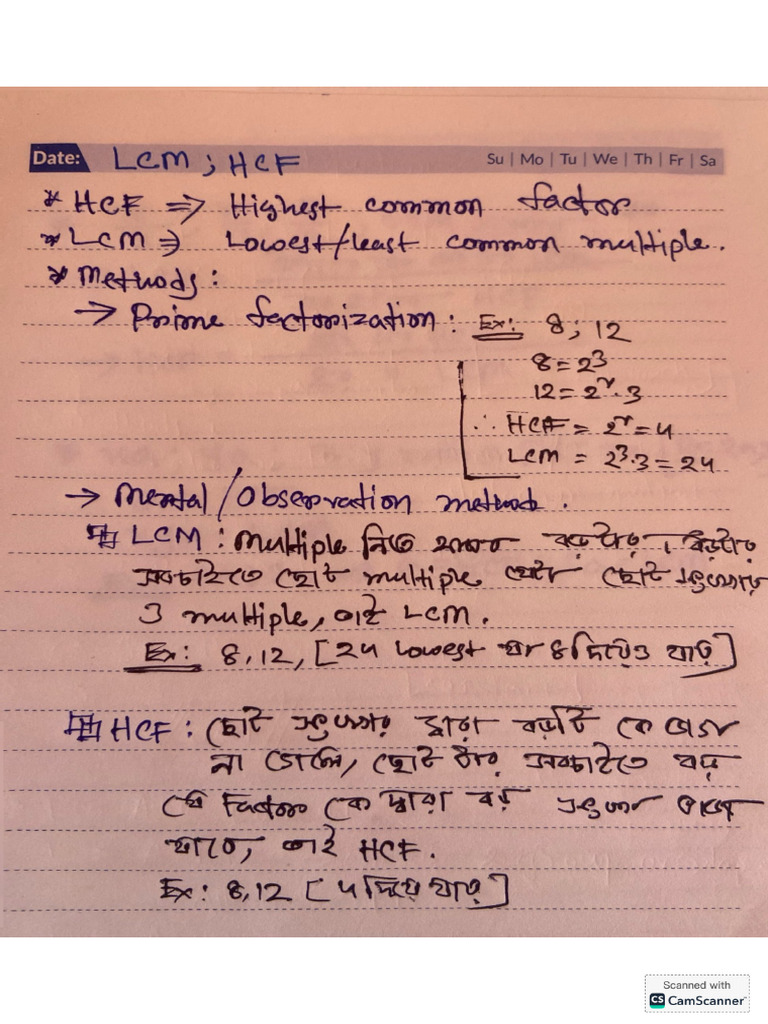 Date: LCM ; HCF Su | Mo | Tu | We | Th | Fr | Sa
* HCF ⇒ Highest common factor
* LCM ⇒ Lowest/least common multiple.
* Methods :
→ Prime factorization : Ex: 8 ; 12
8 = 2³
12 = 2².3
∴ HCF = 2² = 4
LCM = 2³.3 = 24
→ Mental/Observation method.
LCM : Multiple নিতে থাকব বড়টার।
সবচাইতে ছোট multiple যেটা ছোট সংখ্যার
ও multiple, তাই LCM.
Ex: 8, 12, [24 lowest যা ৪ দিয়েও যায়]
HCF : ছোট সংখ্যার দ্বারা বড়টি কে
না গেলে, ছোট টার সবচাইতে বড়
যে Factor কে দ্বারা বড় সংখ্যা
যাবে, তাই HCF.
Ex: 8, 12 [ 4 দিয়ে যায়]
Scanned with
CS CamScanner